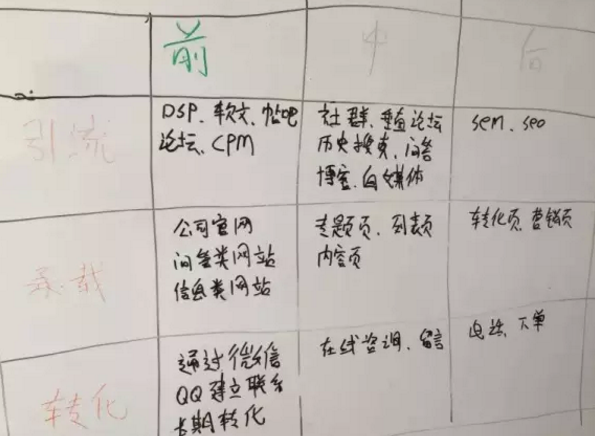 前 中 后
引流
DSP、软文、贴吧
论坛、CPM
社群、垂直论坛
历史搜索、问答
博客、自媒体
sem、seo
承载
公司官网
问答类网站
信息类网站
专题页、列表页
内容页
转化页、营销页
转化
通过微信
QQ建立联系
长期转化
在线咨询、留言
电话、下单